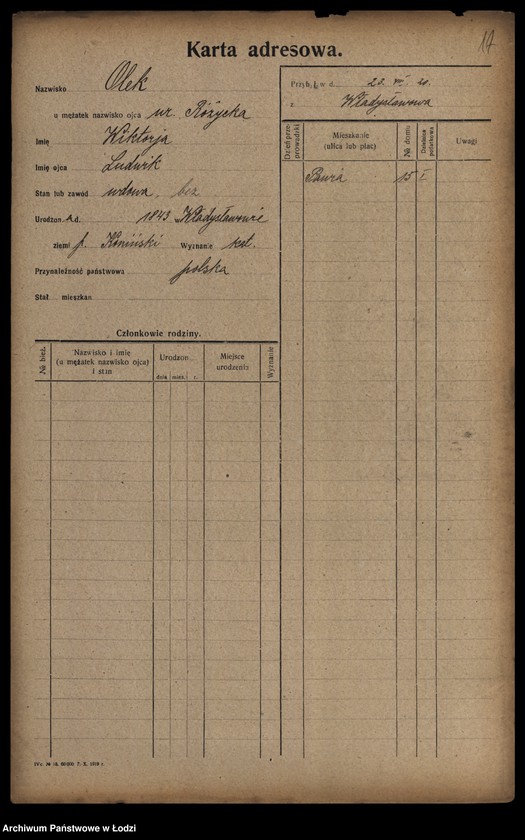 17
Karta adresowa.
Nazwisko Olek
u mężatek nazwisko ojca ur. Różycka
Imię Wiktorja
Imię ojca Ludwik
Stan lub zawód wdowa bez
Urodzon a d. 1843 w Władysławowie
ziemi p. Koniński Wyznanie kat.
Przynależność państwowa polska
Stał. mieszkan.
Przyb. w d. 20
z Władysławowa
Dzień prze-prowadzki
Mieszkanie (ulica lub plac)
№ domu
Dzielnica podatkowa
Uwagi
15 I
Członkowie rodziny.
№ bież.
Nazwisko i imię (u mężatek nazwisko ojca) i stan
Urodzon.
dnia mies. r.
Miejsce urodzenia
Wyznanie
7. X. 1919 r.
Archiwum Państwowe w Łodzi